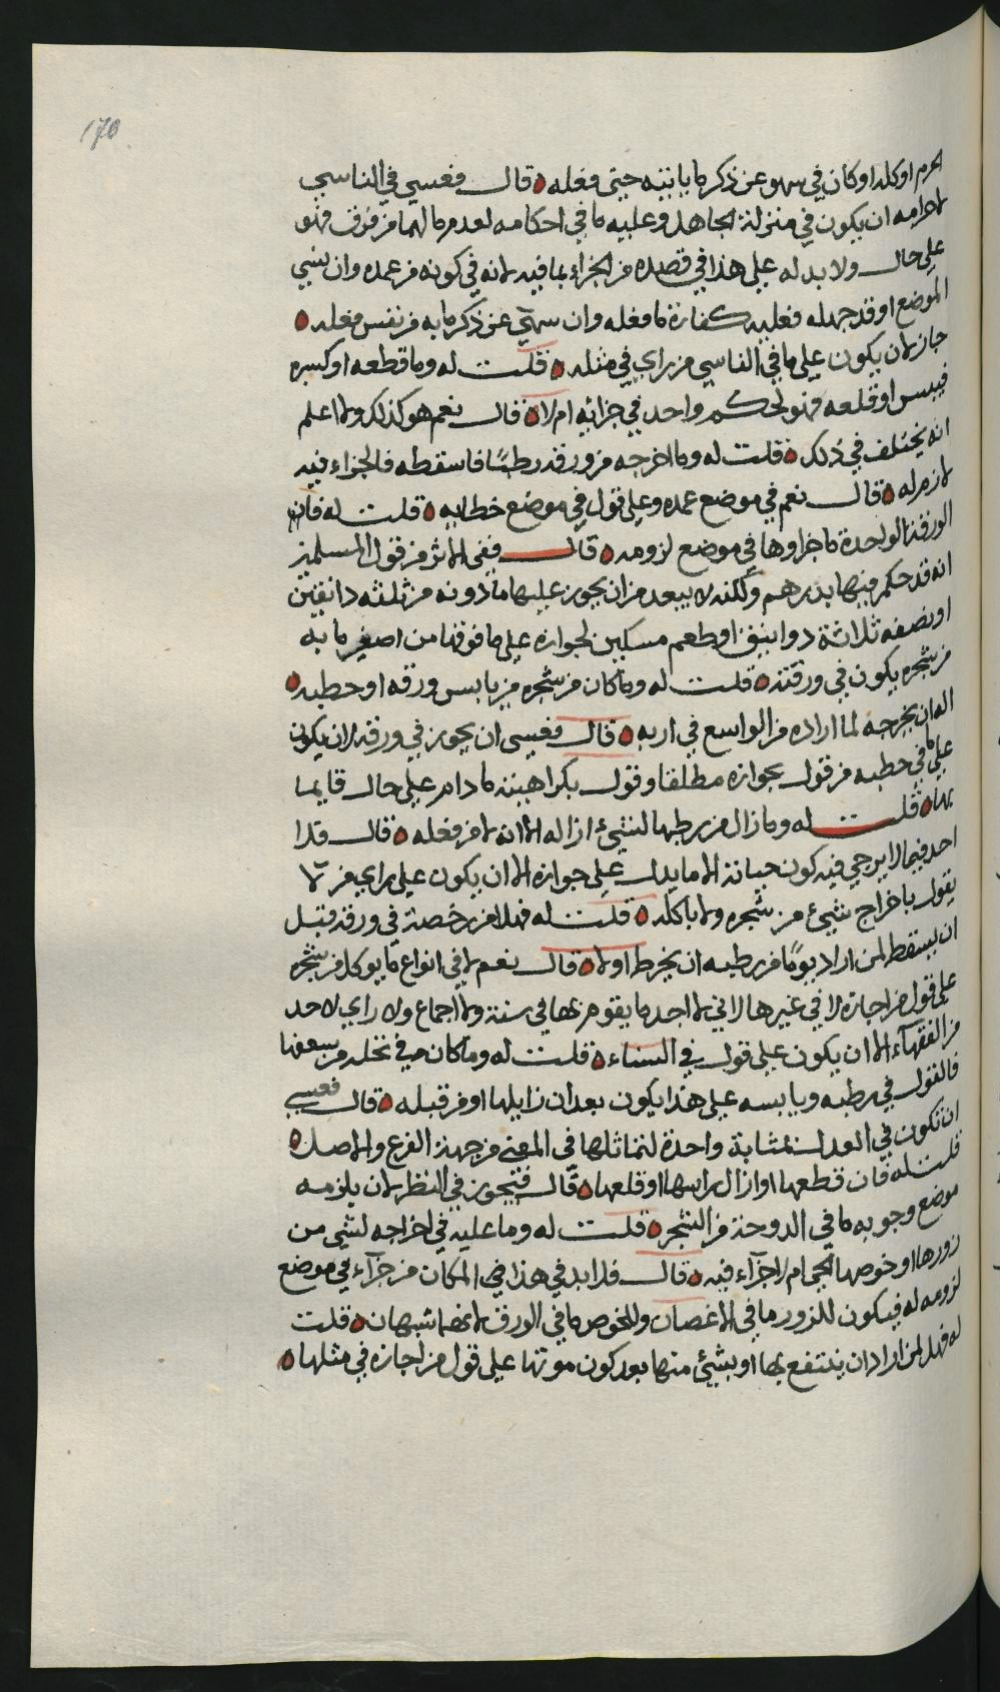 170
الحرم او كله او كان في سهو عن ذكر ما ياتيه حتى فعله قال فعسى في الناسي
لاحرامه ان يكون في منزلة الجاهل وعليه ما في احكامه لعدم ما لهما من فرق فهو
على حال ولا بد له على هذا في قصده من الجزاء بما فيه لانه في كونه من عمده وان نسي
الموضع او قد جهله فعليه كفارة ما فعله وان سهى عن ذكر ما به من نفس فعله
جاز لان يكون على ما في الناسي من راي في مثله قلت له وما قطعه او كسره
فيبس او قلعه فهو لحكم واحد في جزائه ام لا قال نعم هو كذلك ولا اعلم
انه يختلف في ذلك قلت له وما اخرجه من ورقه رطبا فاسقطه فالجزاء فيه
لازم له قال نعم في موضع عمده وعلى قول في موضع خطايه قلت له فان
الورقة الواحدة ما جزاوها في موضع لزومه قال ففي الاثر من قول المسلمين
انه قد حكم فيها بدرهم ولكنه لا يبعد من ان يجوز عليها ما دونه من ثلثه دانقين
او نصفه ثلاثة دوانيق او طعم مسكين لجوازه على ما فوقها من اصغر ما به
من شجره يكون في ورقته قلت له وما كان من شجره من يابس ورقه او حطبه
اله ان يخرجه لما اراده من الواسع في اربه قال فعسى ان يجوز في ورقه لان يكون
على ما في حطبه من قول بجوازه مطلقا وقول بكراهيته ما دام على حال قايما
بها قلت له وما زال من رطبها لشيء ازاله الا انه لا من فعله قال فلا
احد فيما لا يرجى فيه كون حياته الا ما يدل على جوازه الا ان يكون على راي من لا
يقول باخراج شيء من شجره ولا باكله قلت له فهل من رخصة في ورقه قبل
ان يسقط لمن اراد يوما من رطبه ان يخرط اولا قال نعم لا في انواع ما يوكل من شجره
على قول من اجازه لا في غيرها لاني لا اجد ما يقوم بها في سنة ولا اجماع ولا راي لاحد
من الفقهاء الا ان يكون على قول في السناء قلت له وما كان في نخله من سعفها
فالقول في رطبه ويابسه على هذا يكون بعد ان زايلها او من قبله قال فعسى
ان تكون في العدل لمثابة واحدة لتماثلها في المعنى من جهة الفرع والاصل
قلت له فان قطعها او ازال راسها او قلعها قال فيجوز في النظر لان يلزمه
موضع وجوبه ما في الدوحة من الشجر قلت له وما عليه في اخراجه لشي من
زورها او خوصها الحي ام لا جزاء فيه قال فلا بد في هذا في المكان من جزاء في موضع
لزومه له فيكون للزور ما في الاغصان وللخوص ما في الورق لانهما شبهان قلت
له فهل لمن اراد ان ينتفع بها او بشيء منها بعد كون موتها على قول من اجازه في مثلها